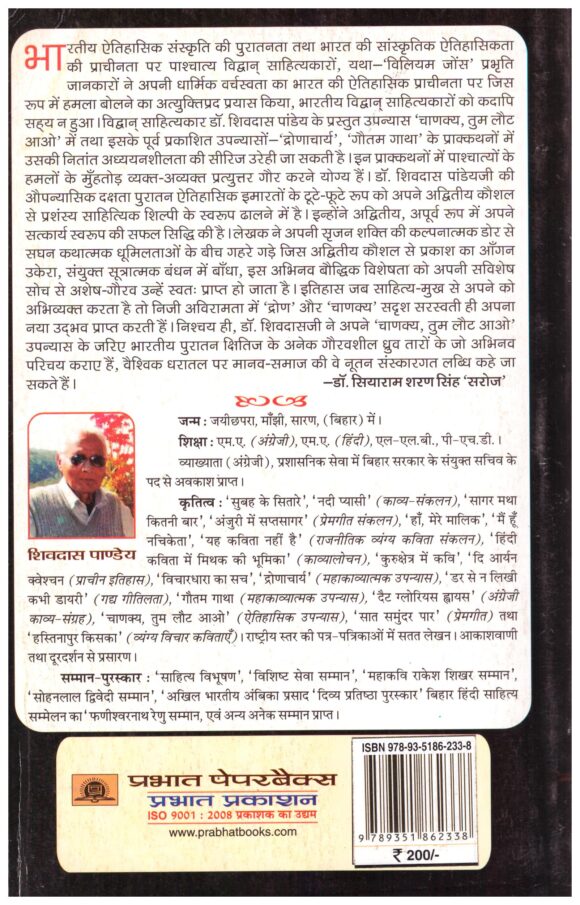 भारतीय ऐतिहासिक संस्कृति की पुरातनता तथा भारत की सांस्कृतिक ऐतिहासिकता
की प्राचीनता पर पाश्चात्य विद्वान् साहित्यकारों, यथा–‘विलियम जोंस’ प्रभृति
जानकारों ने अपनी धार्मिक वर्चस्वता का भारत की ऐतिहासिक प्राचीनता पर जिस
रूप में हमला बोलने का अत्युक्तिप्रद प्रयास किया, भारतीय विद्वान् साहित्यकारों को कदापि
सह्य न हुआ। विद्वान् साहित्यकार डॉ. शिवदास पांडेय के प्रस्तुत उपन्यास ‘चाणक्य, तुम लौट
आओ’ में तथा इसके पूर्व प्रकाशित उपन्यासों–‘द्रोणाचार्य’, ‘गौतम गाथा’ के प्राक्कथनों में
उसकी नितांत अध्ययनशीलता की सीरिज उरेही जा सकती है। इन प्राक्कथनों में पाश्चात्यों के
हमलों के मुँहतोड़ व्यक्त-अव्यक्त प्रत्युत्तर गौर करने योग्य हैं। डॉ. शिवदास पांडेयजी की
औपन्यासिक दक्षता पुरातन ऐतिहासिक इमारतों के टूटे-फूटे रूप को अपने अद्वितीय कौशल
से प्रशंस्य साहित्यिक शिल्पी के स्वरूप ढालने में है। इन्होंने अद्वितीय, अपूर्व रूप में अपने
सत्कार्य स्वरूप की सफल सिद्धि की है। लेखक ने अपनी सृजन शक्ति की कल्पनात्मक डोर से
सघन कथात्मक धूमिलताओं के बीच गहरे गड़े जिस अद्वितीय कौशल से प्रकाश का आँगन
उकेरा, संयुक्त सूत्रात्मक बंधन में बाँधा, इस अभिनव बौद्धिक विशेषता को अपनी सविशेष
सोच से अशेष-गौरव उन्हें स्वतः प्राप्त हो जाता है। इतिहास जब साहित्य-मुख से अपने को
अभिव्यक्त करता है तो निजी अविरामता में ‘द्रोण’ और ‘चाणक्य’ सदृश सरस्वती ही अपना
नया उद्भव प्राप्त करती हैं। निश्चय ही, डॉ. शिवदासजी ने अपने ‘चाणक्य, तुम लौट आओ’
उपन्यास के जरिए भारतीय पुरातन क्षितिज के अनेक गौरवशील ध्रुव तारों के जो अभिनव
परिचय कराए हैं, वैश्विक धरातल पर मानव-समाज की वे नूतन संस्कारगत लब्धि कहे जा
सकते हैं।
–डॉ. सियाराम शरण सिंह ‘सरोज’
जन्म : जयीछपरा, माँझी, सारण, (बिहार) में।
शिक्षा : एम.ए. (अंग्रेजी), एम.ए. (हिंदी), एल-एल.बी., पी-एच.डी.।
व्याख्याता (अंग्रेजी), प्रशासनिक सेवा में बिहार सरकार के संयुक्त सचिव के
पद से अवकाश प्राप्त।
कृतित्व : ‘सुबह के सितारे’, ‘नदी प्यासी’ (काव्य-संकलन), ‘सागर मथा
कितनी बार’, ‘अंजुरी में सप्तसागर’ (प्रेमगीत संकलन), ‘हाँ, मेरे मालिक’, ‘मैं हूँ
नचिकेता’, ‘यह कविता नहीं है’ (राजनीतिक व्यंग्य कविता संकलन), ‘हिंदी
कविता में मिथक की भूमिका’ (काव्यालोचन), ‘कुरुक्षेत्र में कवि’, ‘दि आर्यन
शिवदास पाण्डेय
क्वेश्चन (प्राचीन इतिहास), ‘विचारधारा का सच’, ‘द्रोणाचार्य’ (महाकाव्यात्मक उपन्यास), ‘डर से न लिखी
कभी डायरी’ (गद्य गीतिलता), ‘गौतम गाथा’ (महाकाव्यात्मक उपन्यास), ‘दैट ग्लोरियस ह्वायस’ (अंग्रेजी
काव्य-संग्रह), ‘चाणक्य, तुम लौट आओ’ (ऐतिहासिक उपन्यास), ‘सात समुंदर पार’ (प्रेमगीत) तथा
‘हस्तिनापुर किसका’ (व्यंग्य विचार कविताएँ)। राष्ट्रीय स्तर की पत्र-पत्रिकाओं में सतत लेखन। आकाशवाणी
तथा दूरदर्शन से प्रसारण।
सम्मान-पुरस्कार : ‘साहित्य विभूषण’, ‘विशिष्ट सेवा सम्मान’, ‘महाकवि राकेश शिखर सम्मान’,
‘सोहनलाल द्विवेदी सम्मान’, ‘अखिल भारतीय अंबिका प्रसाद ‘दिव्य प्रतिष्ठा पुरस्कार’ बिहार हिंदी साहित्य
सम्मेलन का ‘फणीश्वरनाथ रेणु सम्मान, एवं अन्य अनेक सम्मान प्राप्त।
प्रभात पेपरबैक्स
प्रभात प्रकाशन
ISO 9001 : 2008 प्रकाशक का उद्यम
www.prabhatbooks.com
ISBN 978-93-5186-233-8
9 789351 862338
₹ 200/-